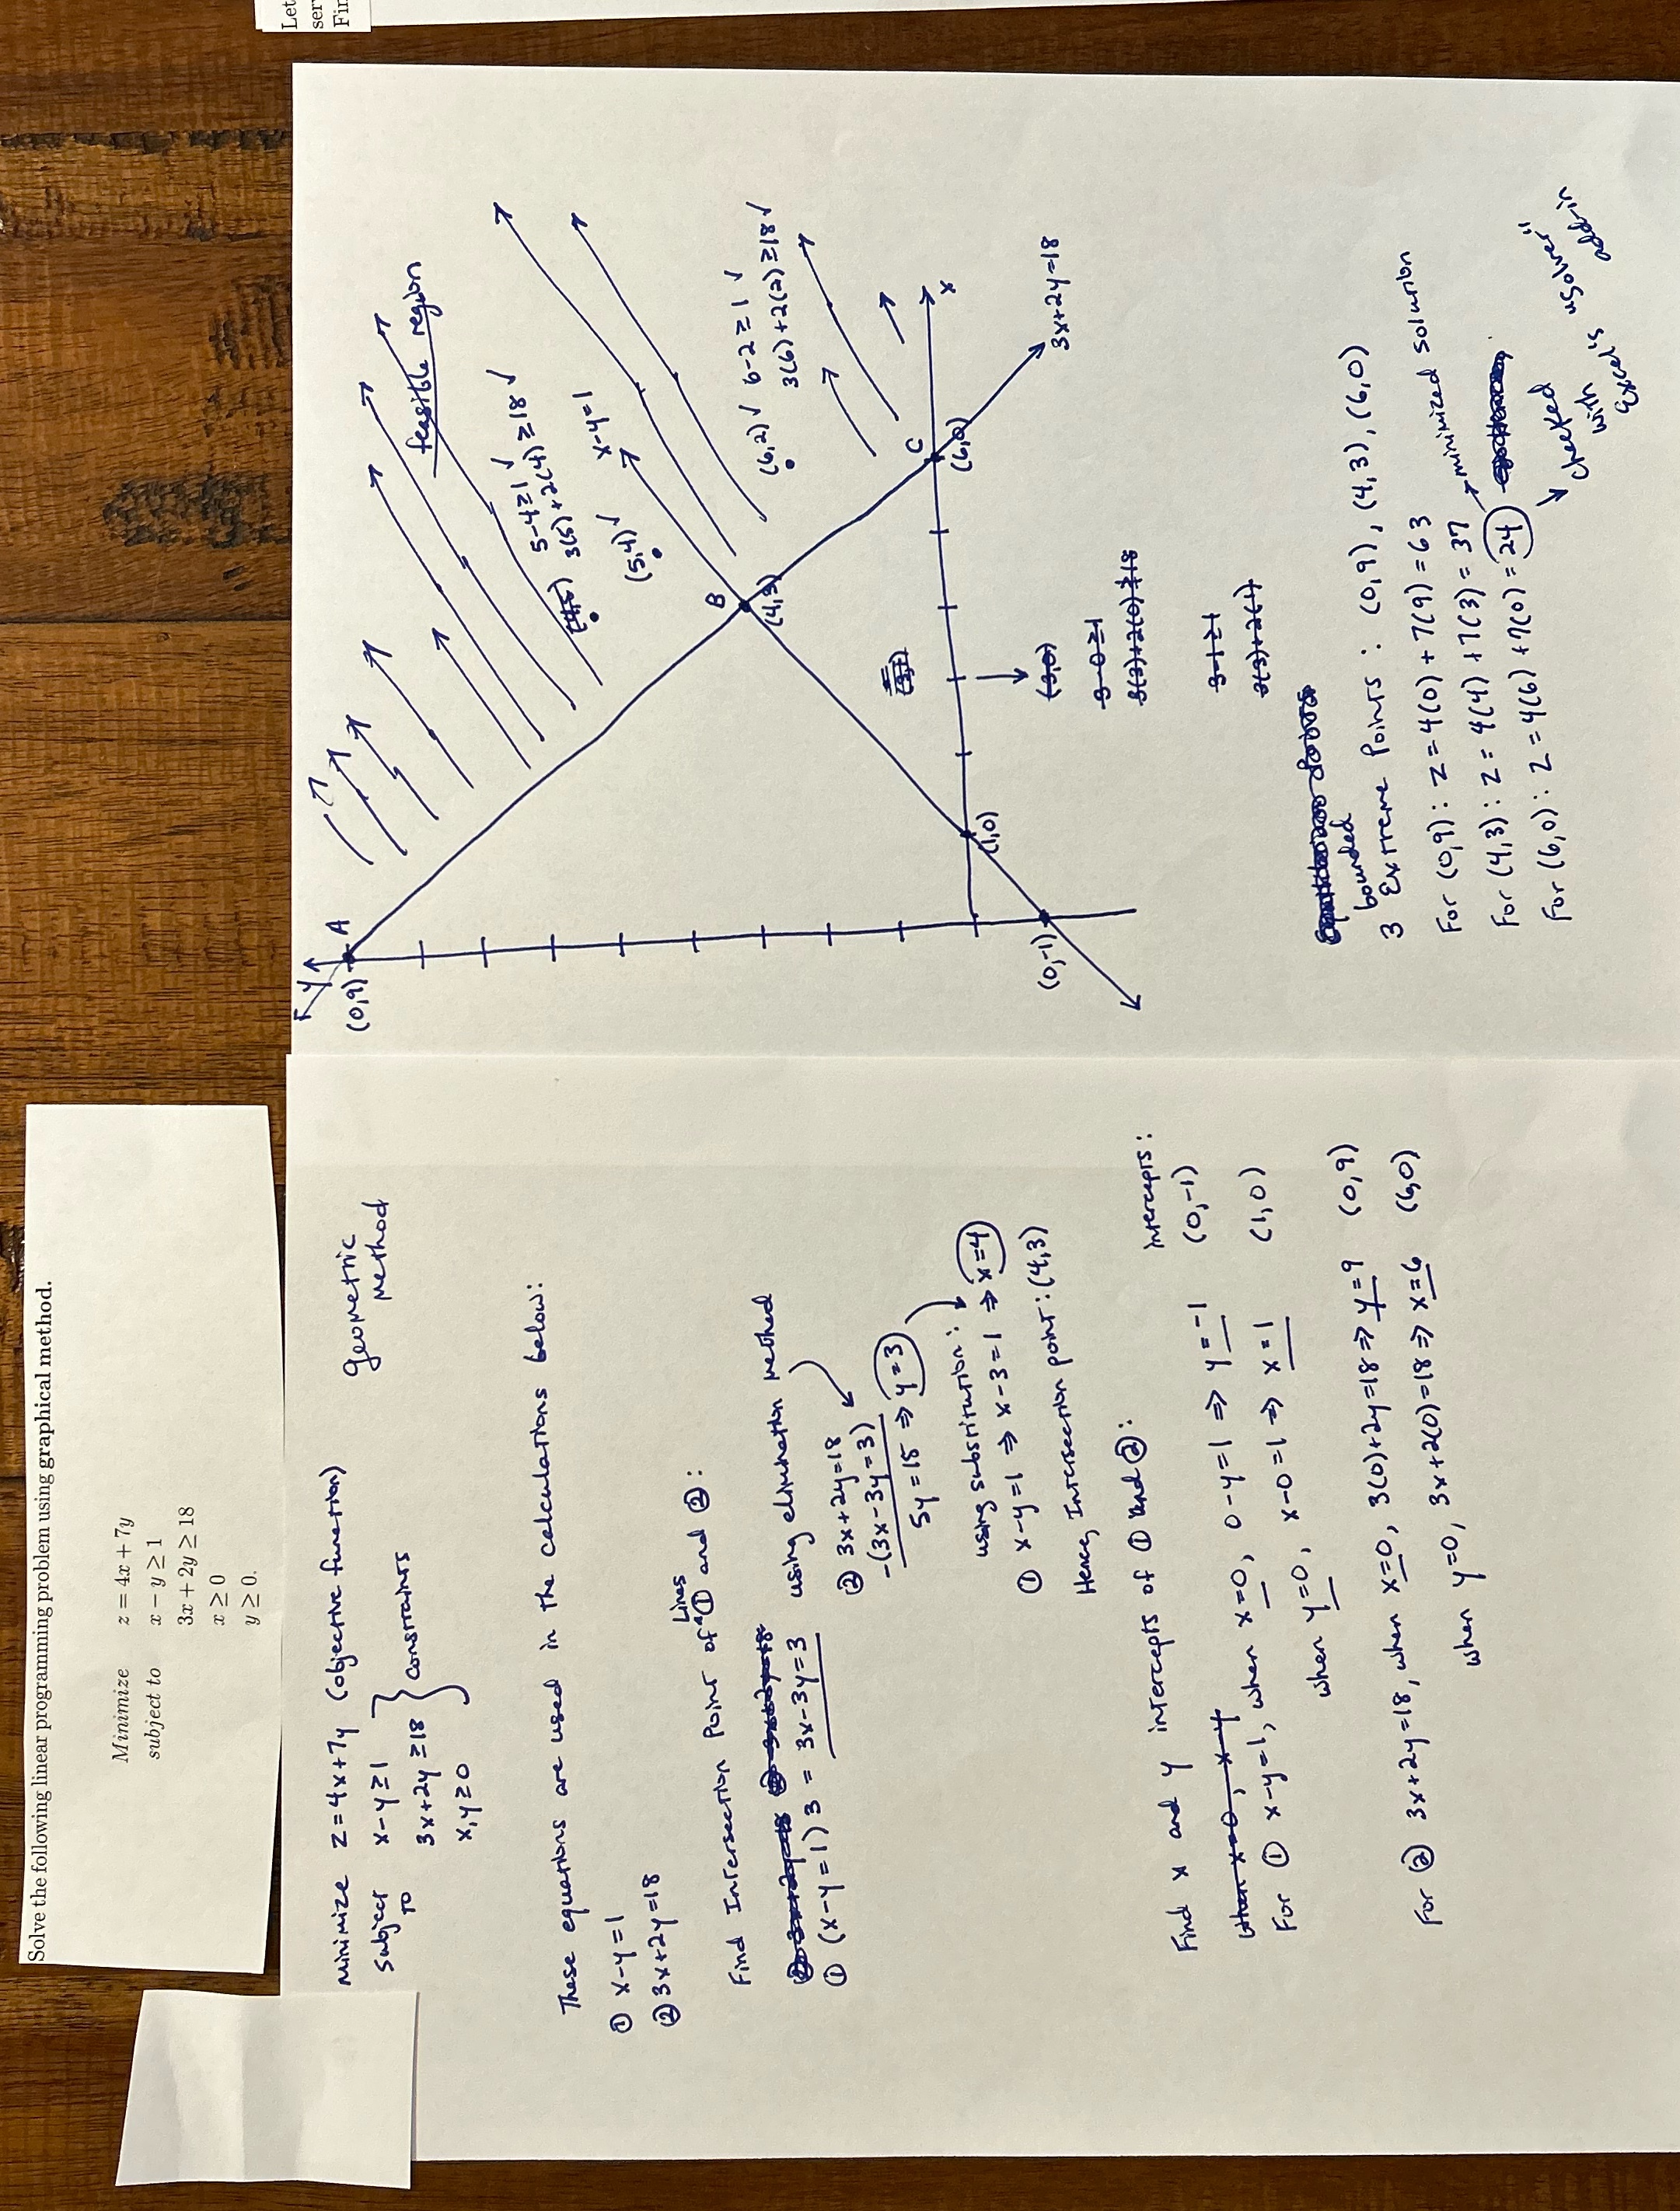 Let
ser
Fin
Solve the following linear programming problem using graphical method.
Minimize z = 4x + 7y
subject to x − y ≥ 1
3x + 2y ≥ 18
x ≥ 0
y ≥ 0.
minimize z = 4x+7y (objective function)
subject to x-y≥1
3x+2y≥18
x,y≥0
} constraints
geometric method
These equations are used in the calculations below:
① x-y=1
② 3x+2y=18
Find Intersection Point of Lines ① and ②:
using elimination method
① (x-y=1)3 = 3x-3y=3
② 3x+2y=18
-(3x-3y=3)
5y=15 ⇒ y=3
using substitution:
① x-y=1 ⇒ x-3=1 ⇒ x=4
Hence, Intersection point: (4,3)
Find x and y intercepts of ① and ②:
Intercepts:
when x=0, x-y
For ① x-y=1, when x=0, 0-y=1 ⇒ y=-1 (0,-1)
when y=0, x-0=1 ⇒ x=1 (1,0)
For ② 3x+2y=18, when x=0, 3(0)+2y=18 ⇒ y=9 (0,9)
when y=0, 3x+2(0)=18 ⇒ x=6 (6,0)
y
A
(0,9)
feasible region
5-4≥1 ✓
3(5)+2(4)≥18 ✓
(5,4) ✓
x-y=1
B
(4,3)
(6,2) ✓ 6-2≥1 ✓
3(6)+2(2)≥18 ✓
C
(6,0)
x
3x+2y=18
(1,0)
(0,-1)
(3,0)
3-0≥1
3(3)+2(0)≱18
3-1≥1
3(3)+2(1)
bounded
3 Extreme Points: (0,9), (4,3), (6,0)
For (0,9): z = 4(0) + 7(9) = 63
For (4,3): z = 4(4) + 7(3) = 37
For (6,0): z = 4(6) + 7(0) = 24
minimized solution
checked
with "solver"
Excel's add-in